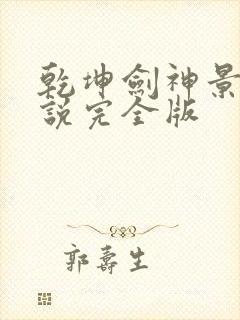 乾坤劍神景
說完全版
郭壽生